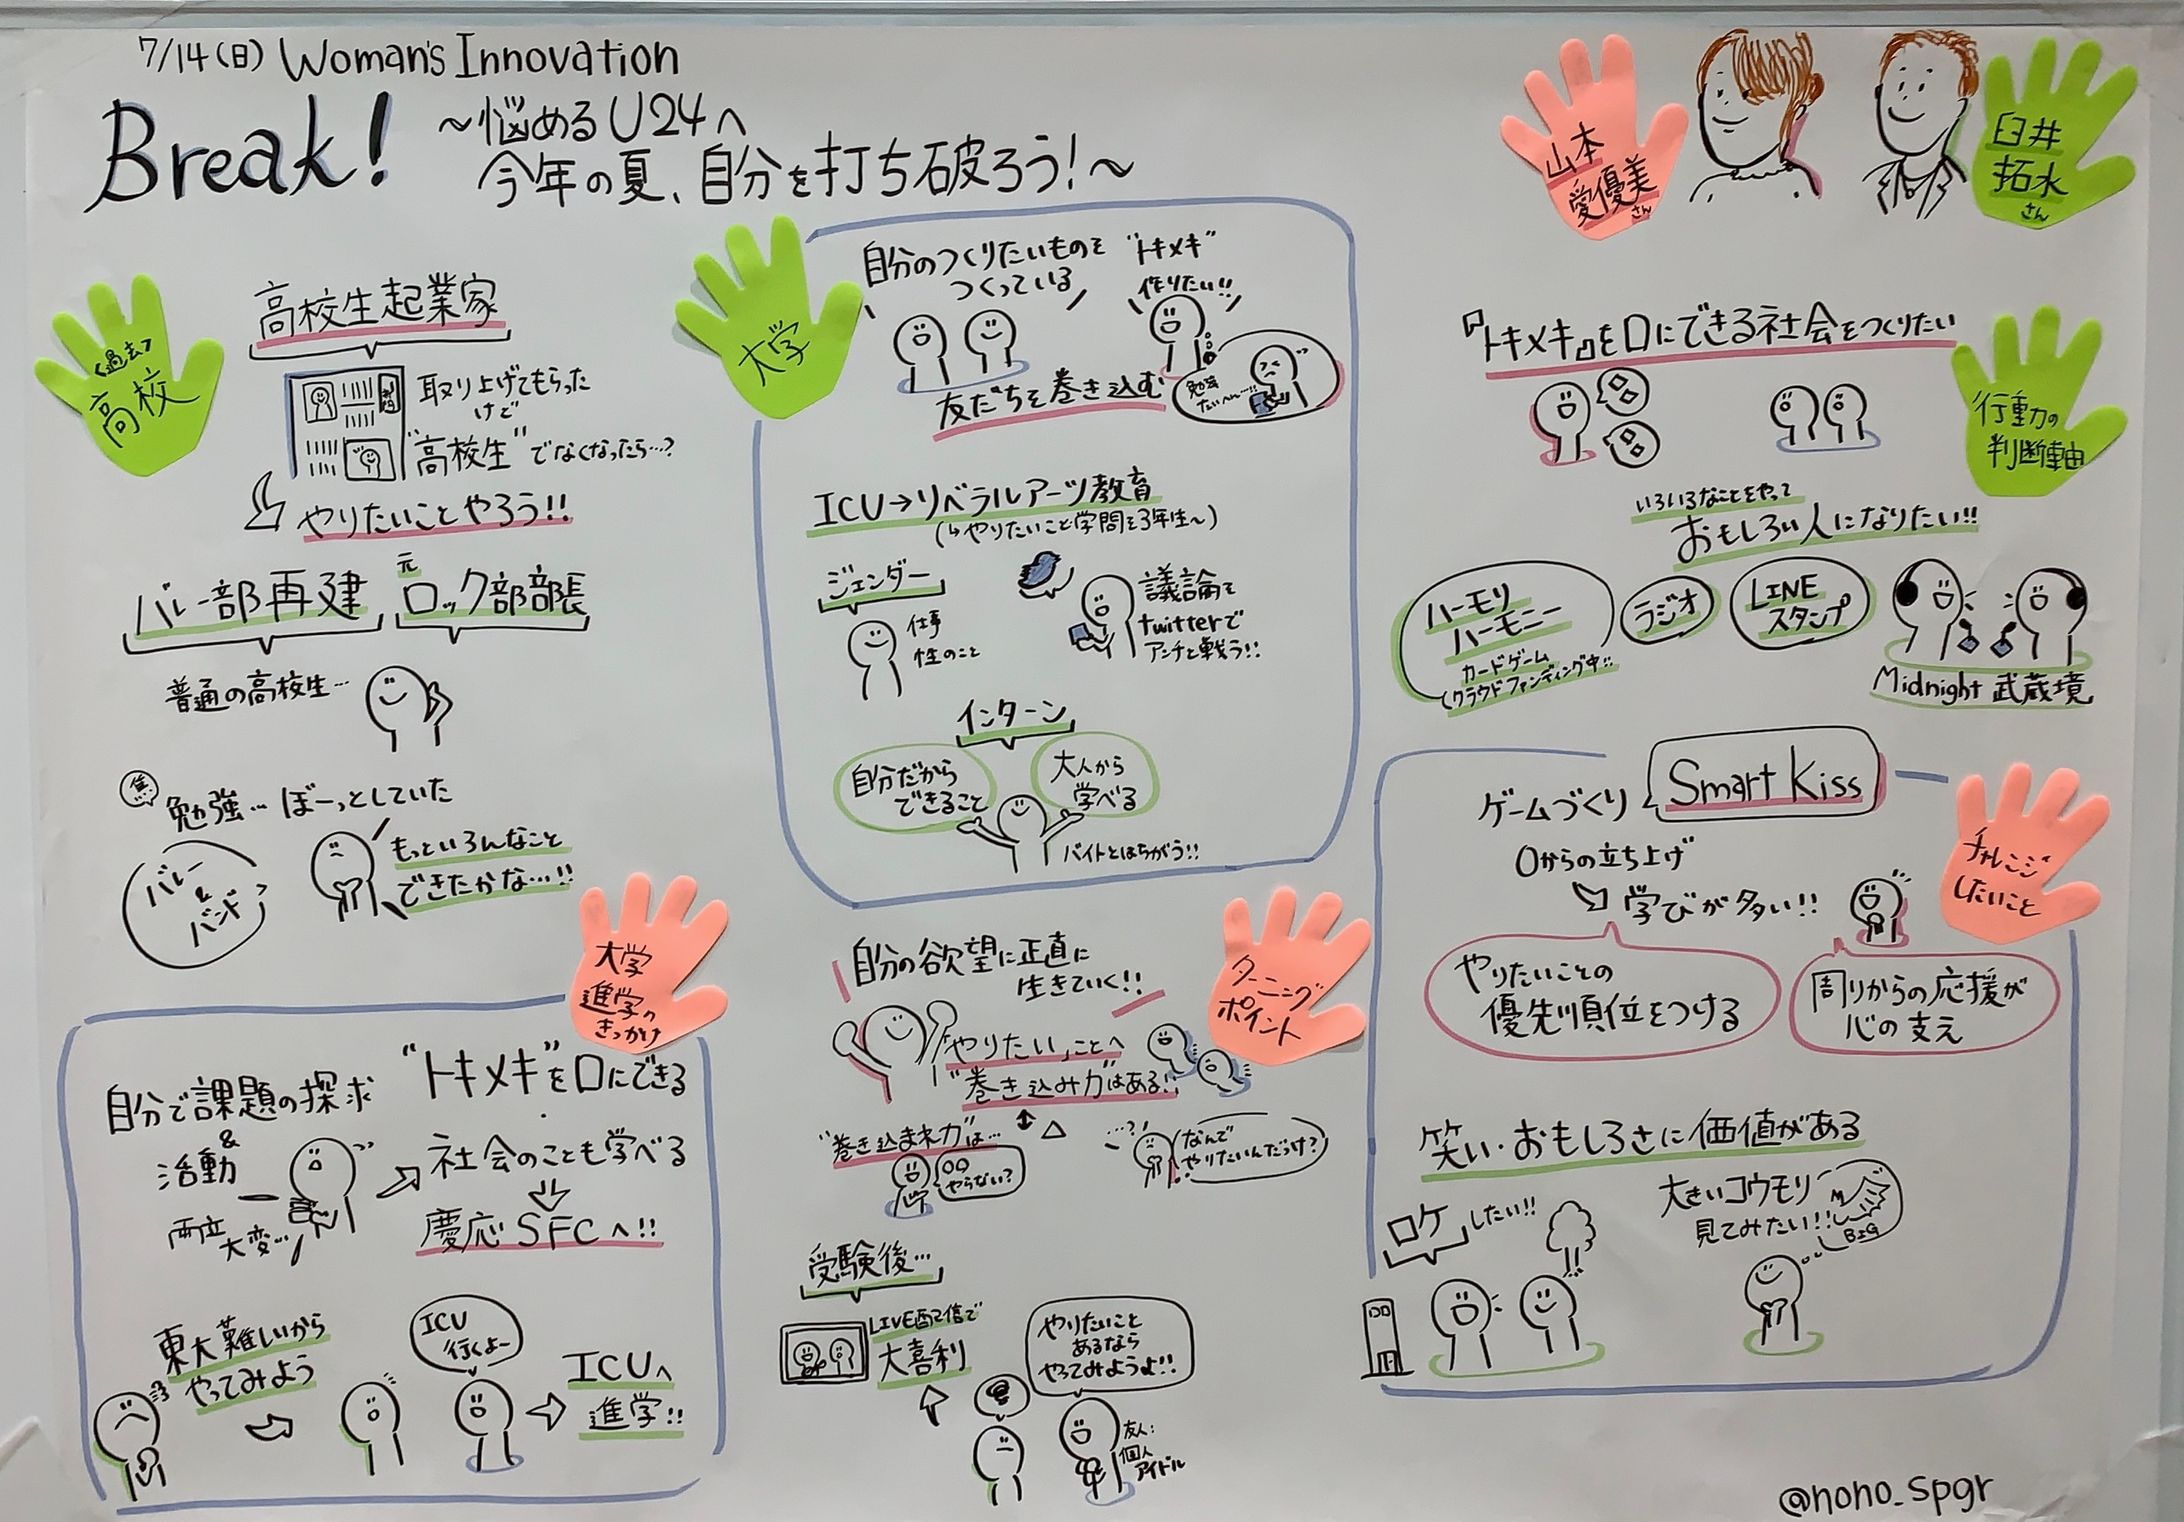 7/14(日) Woman's Innovation
Break!
〜悩めるU24へ
今年の夏、自分を打ち破ろう!〜
山本
愛優美
さん
臼井
拓水
さん
<過去>
高校
高校生起業家
新聞
取り上げてもらった
けど
"高校生"でなくなったら…?
やりたいことやろう!!
バレー部再建
元
ロック部部長
普通の高校生…
焦
勉強… ぼーっとしていた
バレー
&
バンド
もっといろんなこと
できたかな…!!
大学
進学の
きっかけ
自分で課題の探求
&
活動
両立
大変…
"トキメキ"を口にできる
社会のことも学べる
慶応SFCへ!!
東大難しいから
やってみよう
ICU
行くよー
ICUへ
進学!!
大学
自分のつくりたいものを
つくっている
"トキメキ"
作りたい!!
友だちを巻き込む
ICU→リベラルアーツ教育
(↳やりたいこと学問を3年生〜)
ジェンダー
仕事
性のこと
議論を
twitterで
アンチと戦う!!
インターン
自分だから
できること
大人から
学べる
バイトとはちがう!!
ターニング
ポイント
自分の欲望に正直に
生きていく!!
「やりたい」ことへ
"巻き込み力"はある!!
↕ △
"巻き込まれ力"は…
○○
やらない?
…?!
なんで
やりたいんだっけ?
受験後…
LIVE配信で
大喜利
やりたいこと
あるなら
やってみようよ!!
友人:
個人
アイドル
行動の
判断軸
『トキメキ』を口にできる社会をつくりたい
いろいろなことをやって
おもしろい人になりたい!!
ハーモリ
ハーモニー
カードゲーム
クラウドファンディング中!!
ラジオ
LINE
スタンプ
Midnight 武蔵境
チャレンジ
したいこと
ゲームづくり
Smart Kiss
0からの立ち上げ
学びが多い!!
やりたいことの
優先順位をつける
周りからの応援が
心の支え
笑い・おもしろさに価値がある
ロケしたい!!
大きいコウモリ
見てみたい!!
BIG
@nono_spgr